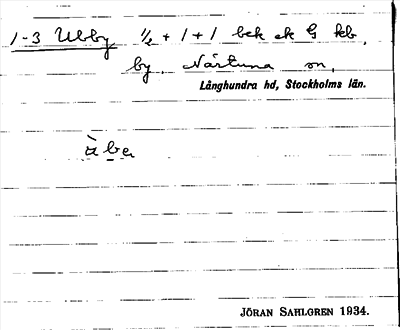 1-3 Ubby ½ + 1 + 1 bek ek G kb,
by. Närtuna sn,
Långhundra hd, Stockholms län.
ùba
JÖRAN SAHLGREN 1934.